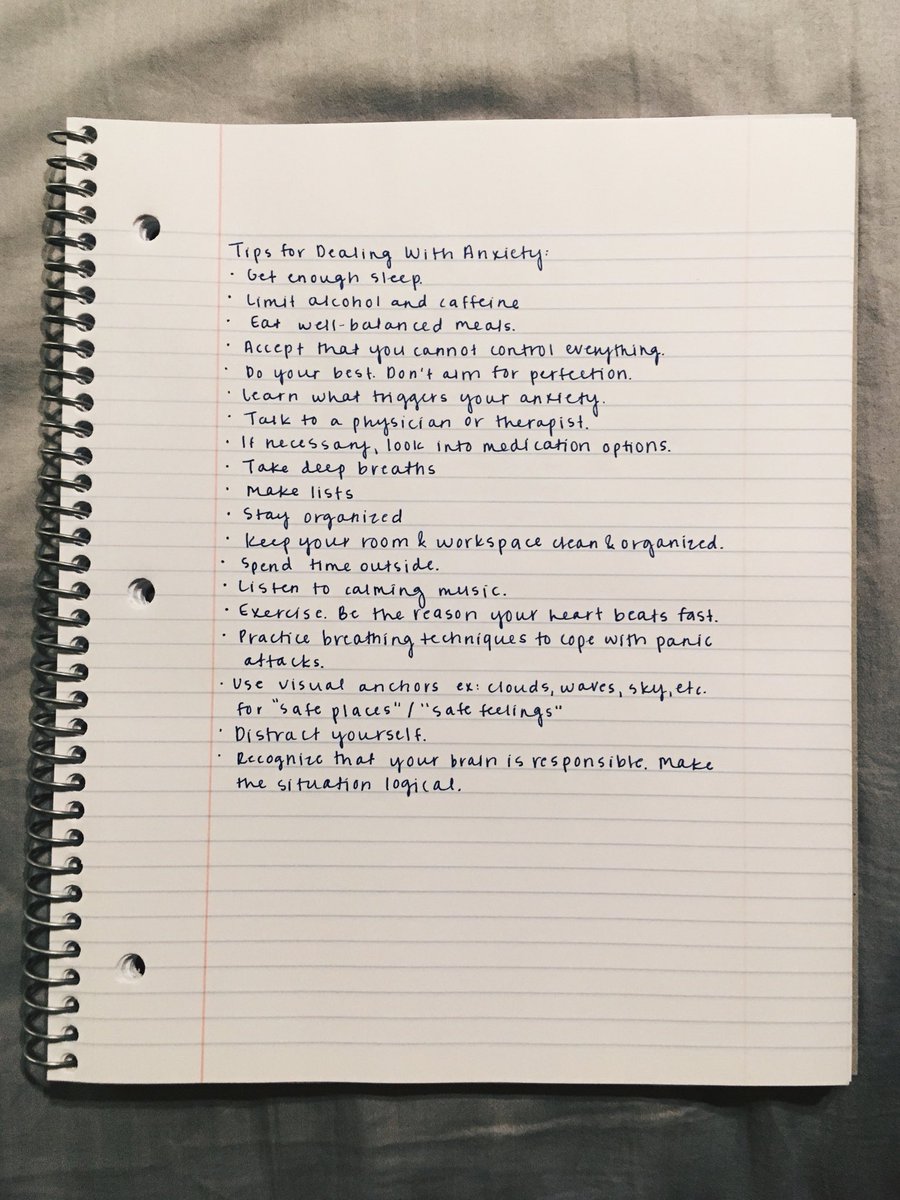 Tips for Dealing With Anxiety:
· Get enough sleep.
· Limit alcohol and caffeine
· Eat well-balanced meals.
· Accept that you cannot control everything.
· Do your best. Don't aim for perfection.
· Learn what triggers your anxiety.
· Talk to a physician or therapist.
· If necessary, look into medication options.
· Take deep breaths
· Make lists
· Stay organized
· Keep your room & workspace clean & organized.
· Spend time outside.
· Listen to calming music.
· Exercise. Be the reason your heart beats fast.
· Practice breathing techniques to cope with panic
attacks.
· Use visual anchors ex: clouds, waves, sky, etc.
for "safe places" / "safe feelings"
· Distract yourself.
· Recognize that your brain is responsible. Make
the situation logical.